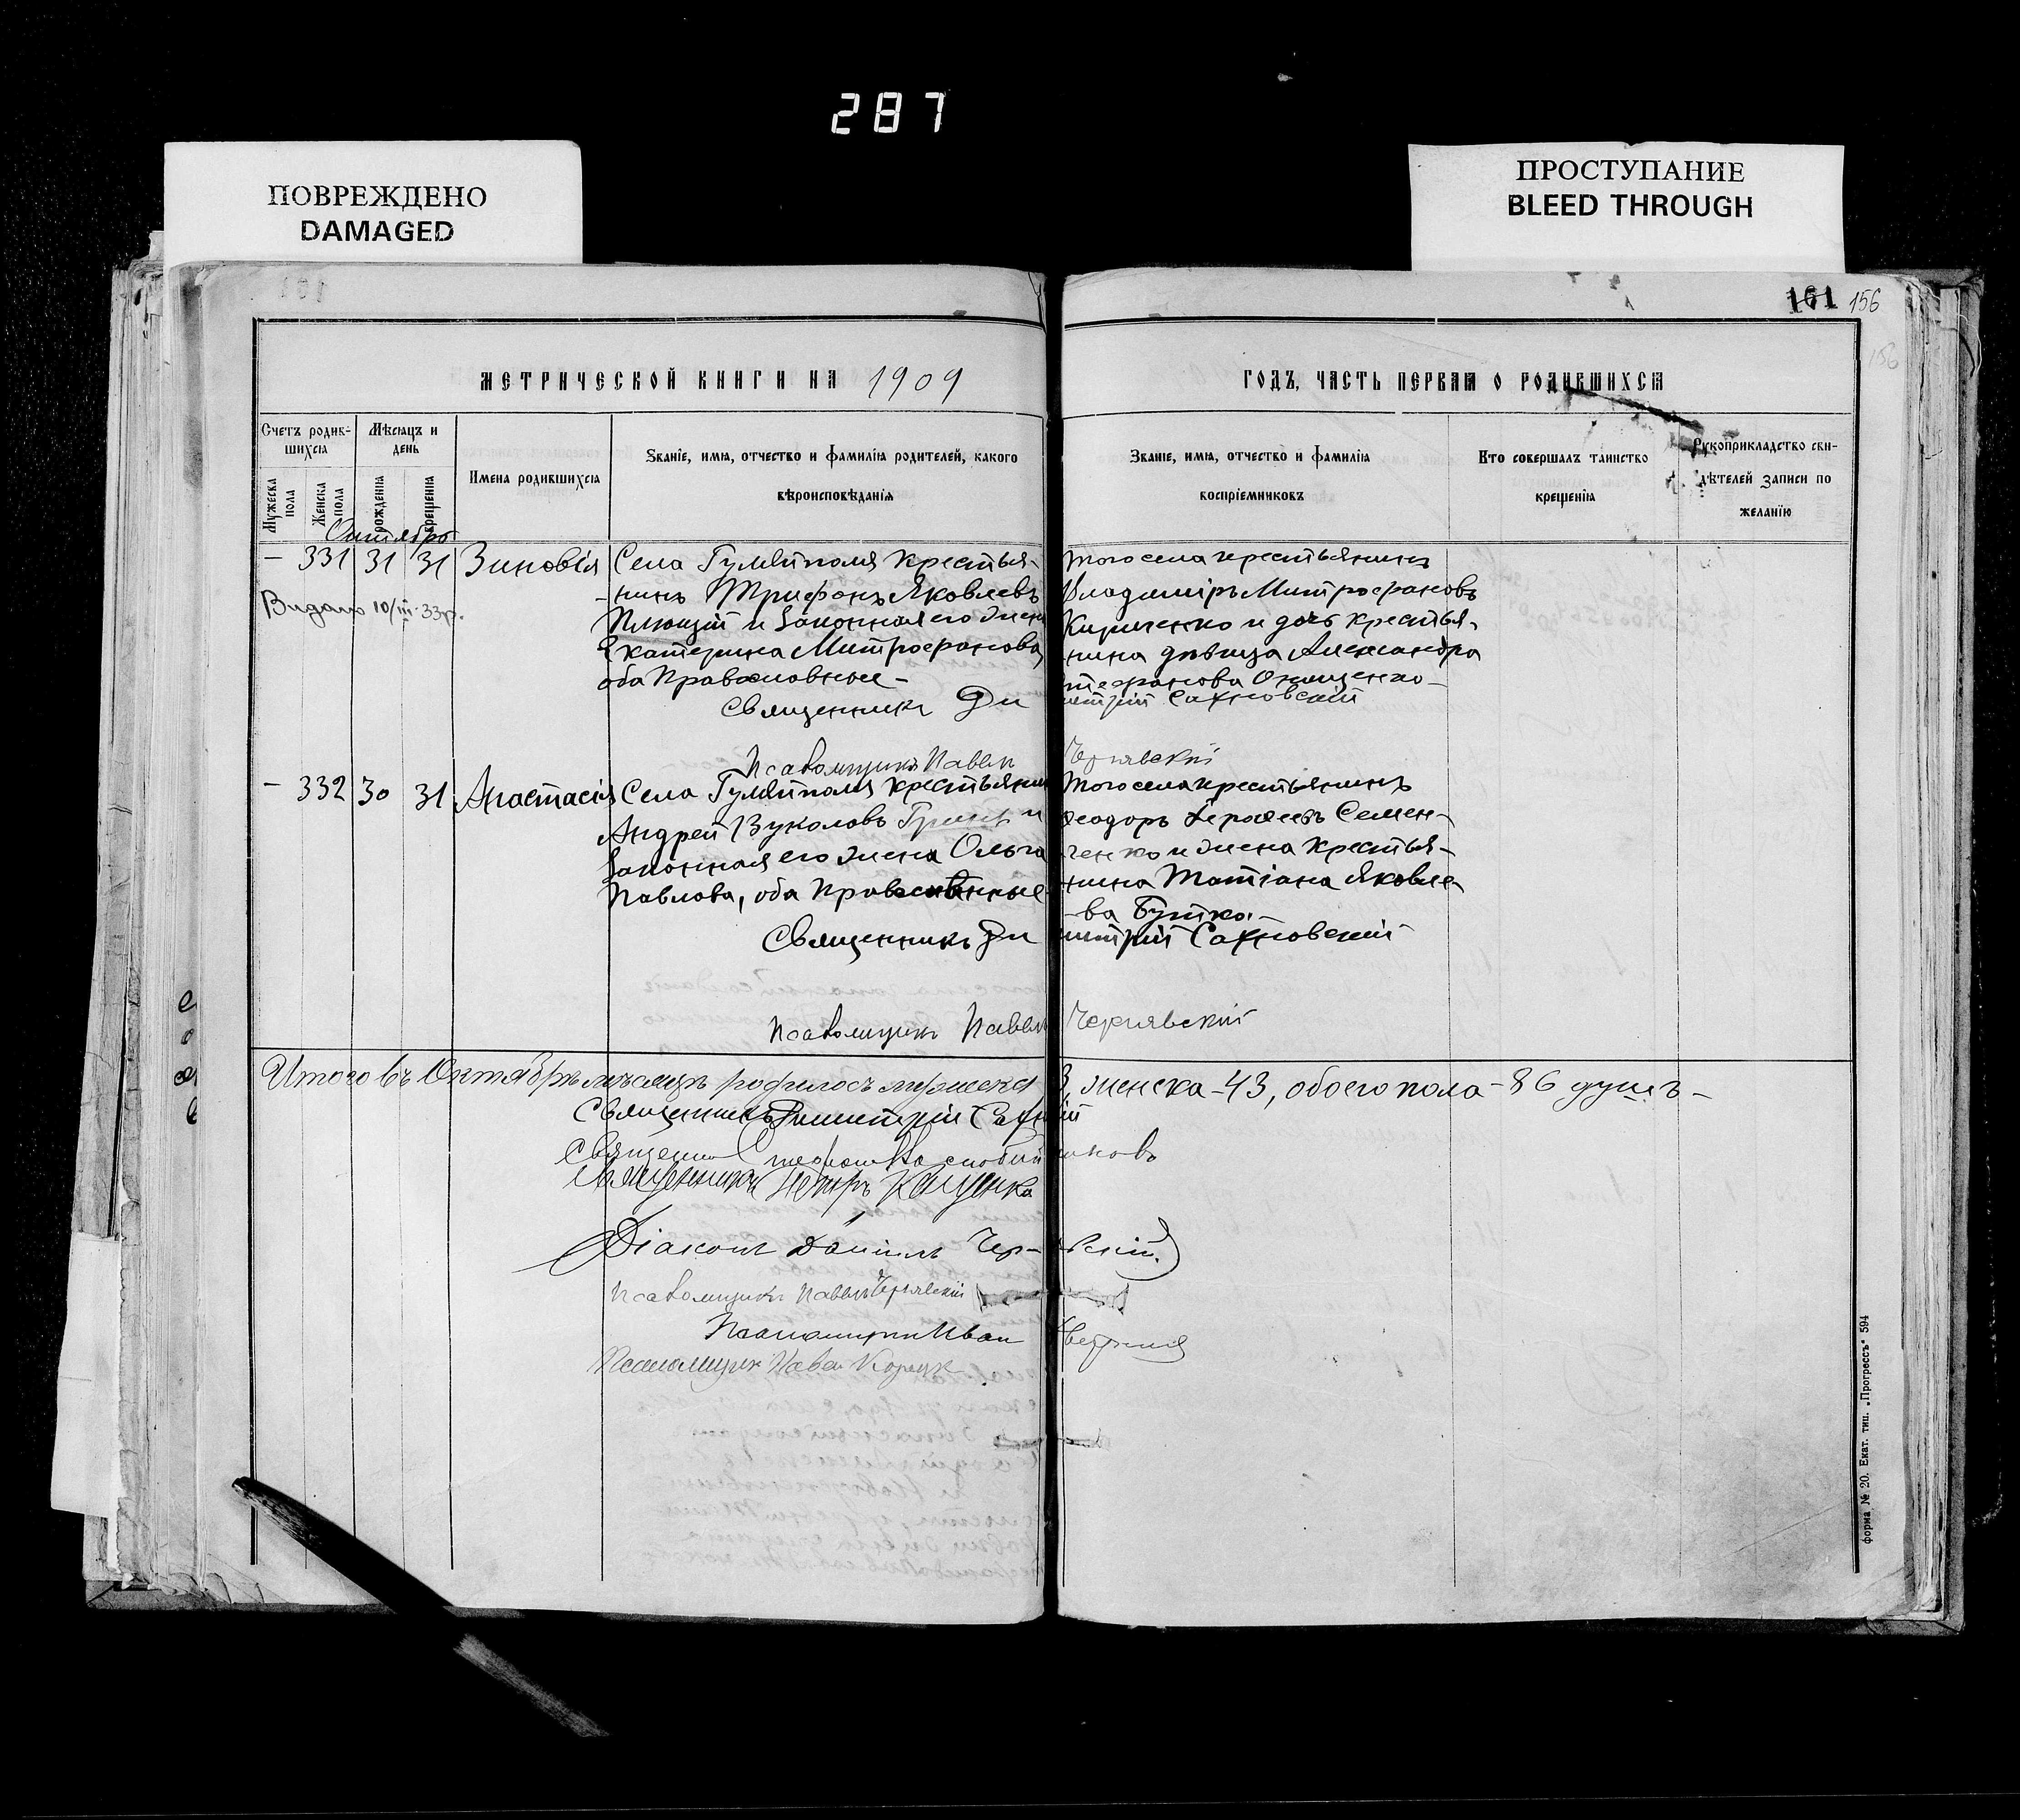 287
ПОВРЕЖДЕНО
DAMAGED
ПРОСТУПАНИЕ
BLEED THROUGH
161 156
МЕТРИЧЕСКОЙ КНИГИ НА 1909
ГОДЪ, ЧАСТЬ ПЕРВАЯ О РОДИВШИХСЯ
Счетъ родив-
шихся
Мужеска
пола
Женска
пола
Мѣсяцъ и
день
рожденія
крещенія
Имена родившихся
Званіе, имя, отчество и фамилія родителей, какого
вѣроисповѣданія
Званіе, имя, отчество и фамилія
воспріемниковъ
Кто совершалъ таинство
крещенія
Рукоприкладство сви-
дѣтелей записи по
желанію
Октябрь
— 331 31 31 Зиновія
Видано 10/III-33р.
Села Гуляйполя крестья-
-нинъ Трифонъ Яковлевъ
и законная его жена
Екатерина Митрофанова,
оба Православные-
Священникъ Ди
Псаломщикъ Павелъ
того села крестьянинъ
Владиміръ Митрофановъ
Кириченко и дочь крестья-
нина дѣвица Александра
Онищенко-
митрій Сахновскій
Чернявскій
— 332 30 31 Анастасія
Села Гуляйполя крестьянин
Андрей Вуколовъ и
законная его жена Ольга
Павлова, оба Православные
Священникъ Ди
Псаломщикъ Павелъ
того села крестьянинъ
Ѳеодоръ Семен-
ченко и жена крестья-
нина Татіана Яковле-
-ва Бутко.-
митрій Сахновскій
Чернявскій
Итого въ Октябрѣ мѣсяцѣ родилось мужеска
3, женска-43, обоего пола-86 душъ-
Священникъ Димитрій Сахн ій
Священникъ
Священникъ Петръ Кащенко
Діаконъ Даніилъ Чер- вскій.
Псаломщикъ Павелъ Чернявскій
Псаломщикъ Иван
Псаломщик Павел
форма № 20. Екат. тип. „Прогрессъ" 594